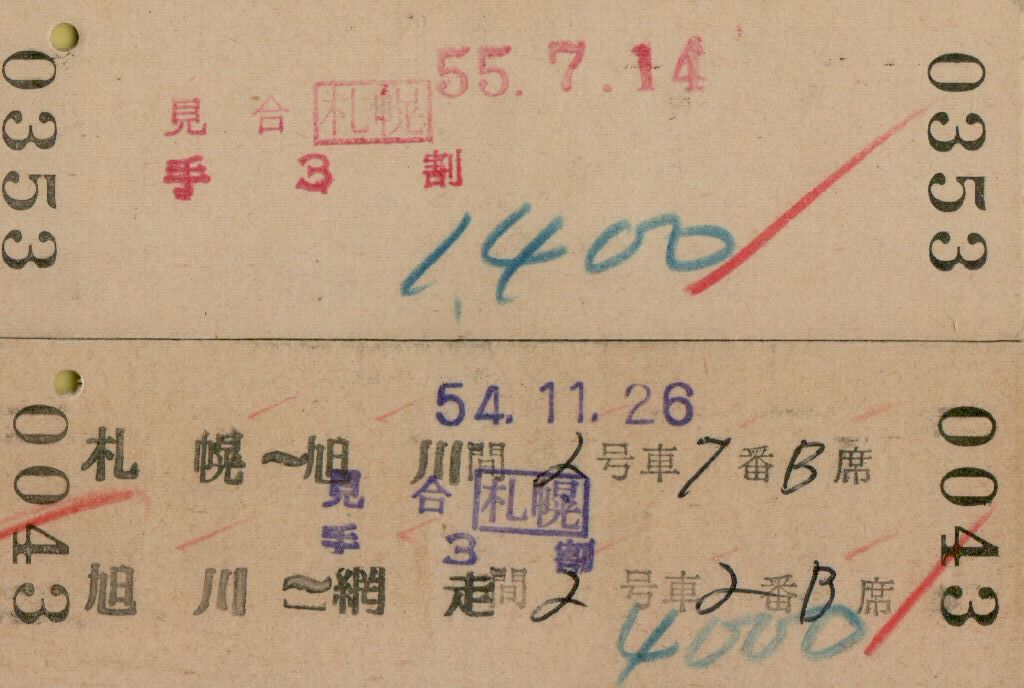 0353
55.7.14
見 合 札幌
手 3 割
1,400
0353
0043
54.11.26
札 幌~旭 川間 2号車7番B席
見 合 札幌
手 3 割
旭 川~網 走間2 号車2番B席
4000
0043